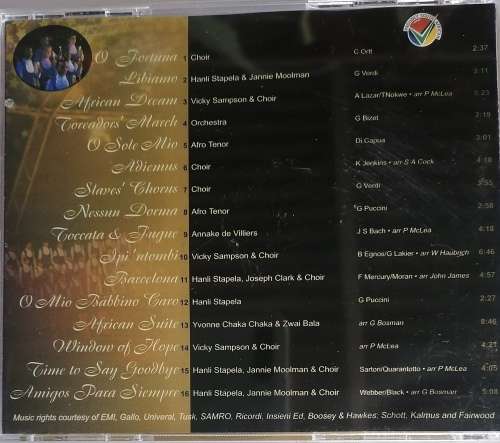 O Fortuna 1 Choir C Orff 2:37
Libiamo 2 Hanli Stapela & Jannie Moolman G Verdi 3:11
African Dream 3 Vicky Sampson & Choir A Lazar/TNokwe • arr P McLea 5:23
Toreadors' March 4 Orchestra G Bizet 2:19
O Sole Mio 5 Afro Tenor Di Capua 3:01
Adiemus 6 Choir K Jenkins • arr S A Cock 4:18
Slaves' Chorus 7 Choir G Verdi 3:55
Nessun Dorma 8 Afro Tenor G Puccini 2:58
Toccata & Fugue 9 Annake de Villiers J S Bach • arr P McLea 4:18
Ipi 'ntombi 10 Vicky Sampson & Choir B Egnos/G Lakier • arr W Haubrich 6:46
Barcelona 11 Hanli Stapela, Joseph Clark & Choir F Mercury/Moran • arr John James 4:57
O Mio Babbino Caro 12 Hanli Stapela G Puccini 2:27
African Suite 13 Yvonne Chaka Chaka & Zwai Bala arr G Bosman 8:46
Window of Hope 14 Vicky Sampson & Choir arr P McLea 4:21
Time to Say Goodbye 15 Hanli Stapela, Jannie Moolman & Choir Sartori/Quarantotto • arr P McLea 4:05
Amigos Para Siempre 16 Hanli Stapela, Jannie Moolman & Choir Webber/Black • arr G Bosman 5:08
Music rights courtesy of EMI, Gallo, Univeral, Tusk, SAMRO, Ricordi, Insieni Ed, Boosey & Hawkes: Schott, Kalmus and Fairwood